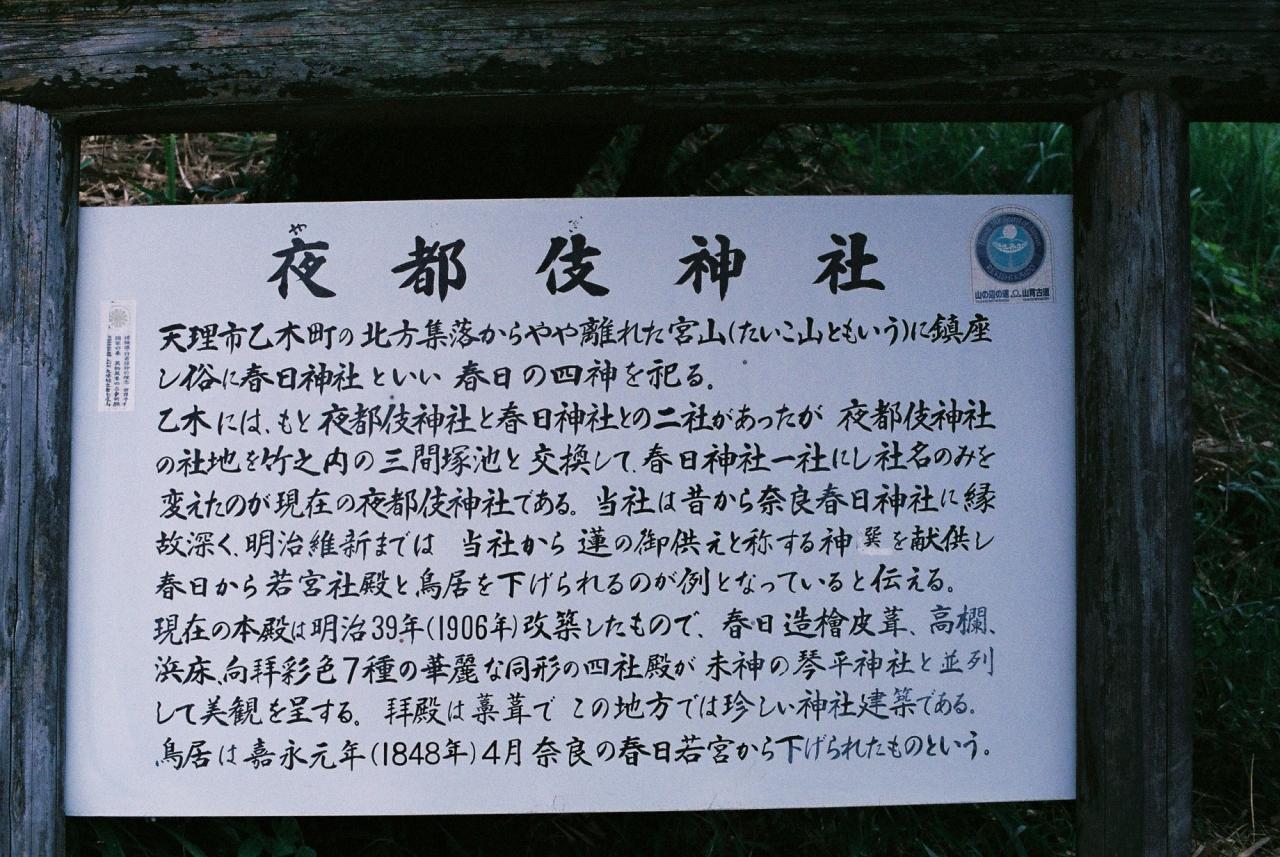 や
夜都伎神社
天理市乙木町の北方集落からやや離れた宮山(たいこ山ともいう)に鎮座
し俗に春日神社といい 春日の四神を祀る。
乙木には、もと夜都伎神社と春日神社との二社があったが 夜都伎神社
の社地を竹之内の三間塚池と交換して、春日神社一社にし社名のみを
変えたのが現在の夜都伎神社である。当社は昔から奈良春日神社に縁
故深く、明治維新までは 当社から 蓮の御供えと称する神饌を献供し
春日から若宮社殿と鳥居を下げられるのが例となっていると伝える。
現在の本殿は明治39年(1906年)改築したもので、春日造檜皮葺、高欄、
浜床、向拝彩色7種の華麗な同形の四社殿が 末神の琴平神社と並列
して美観を呈する。拝殿は藁葺で この地方では珍しい神社建築である。
鳥居は嘉永元年(1848年)4月奈良の春日若宮から下げられたものという。
山の辺の道 山背古道